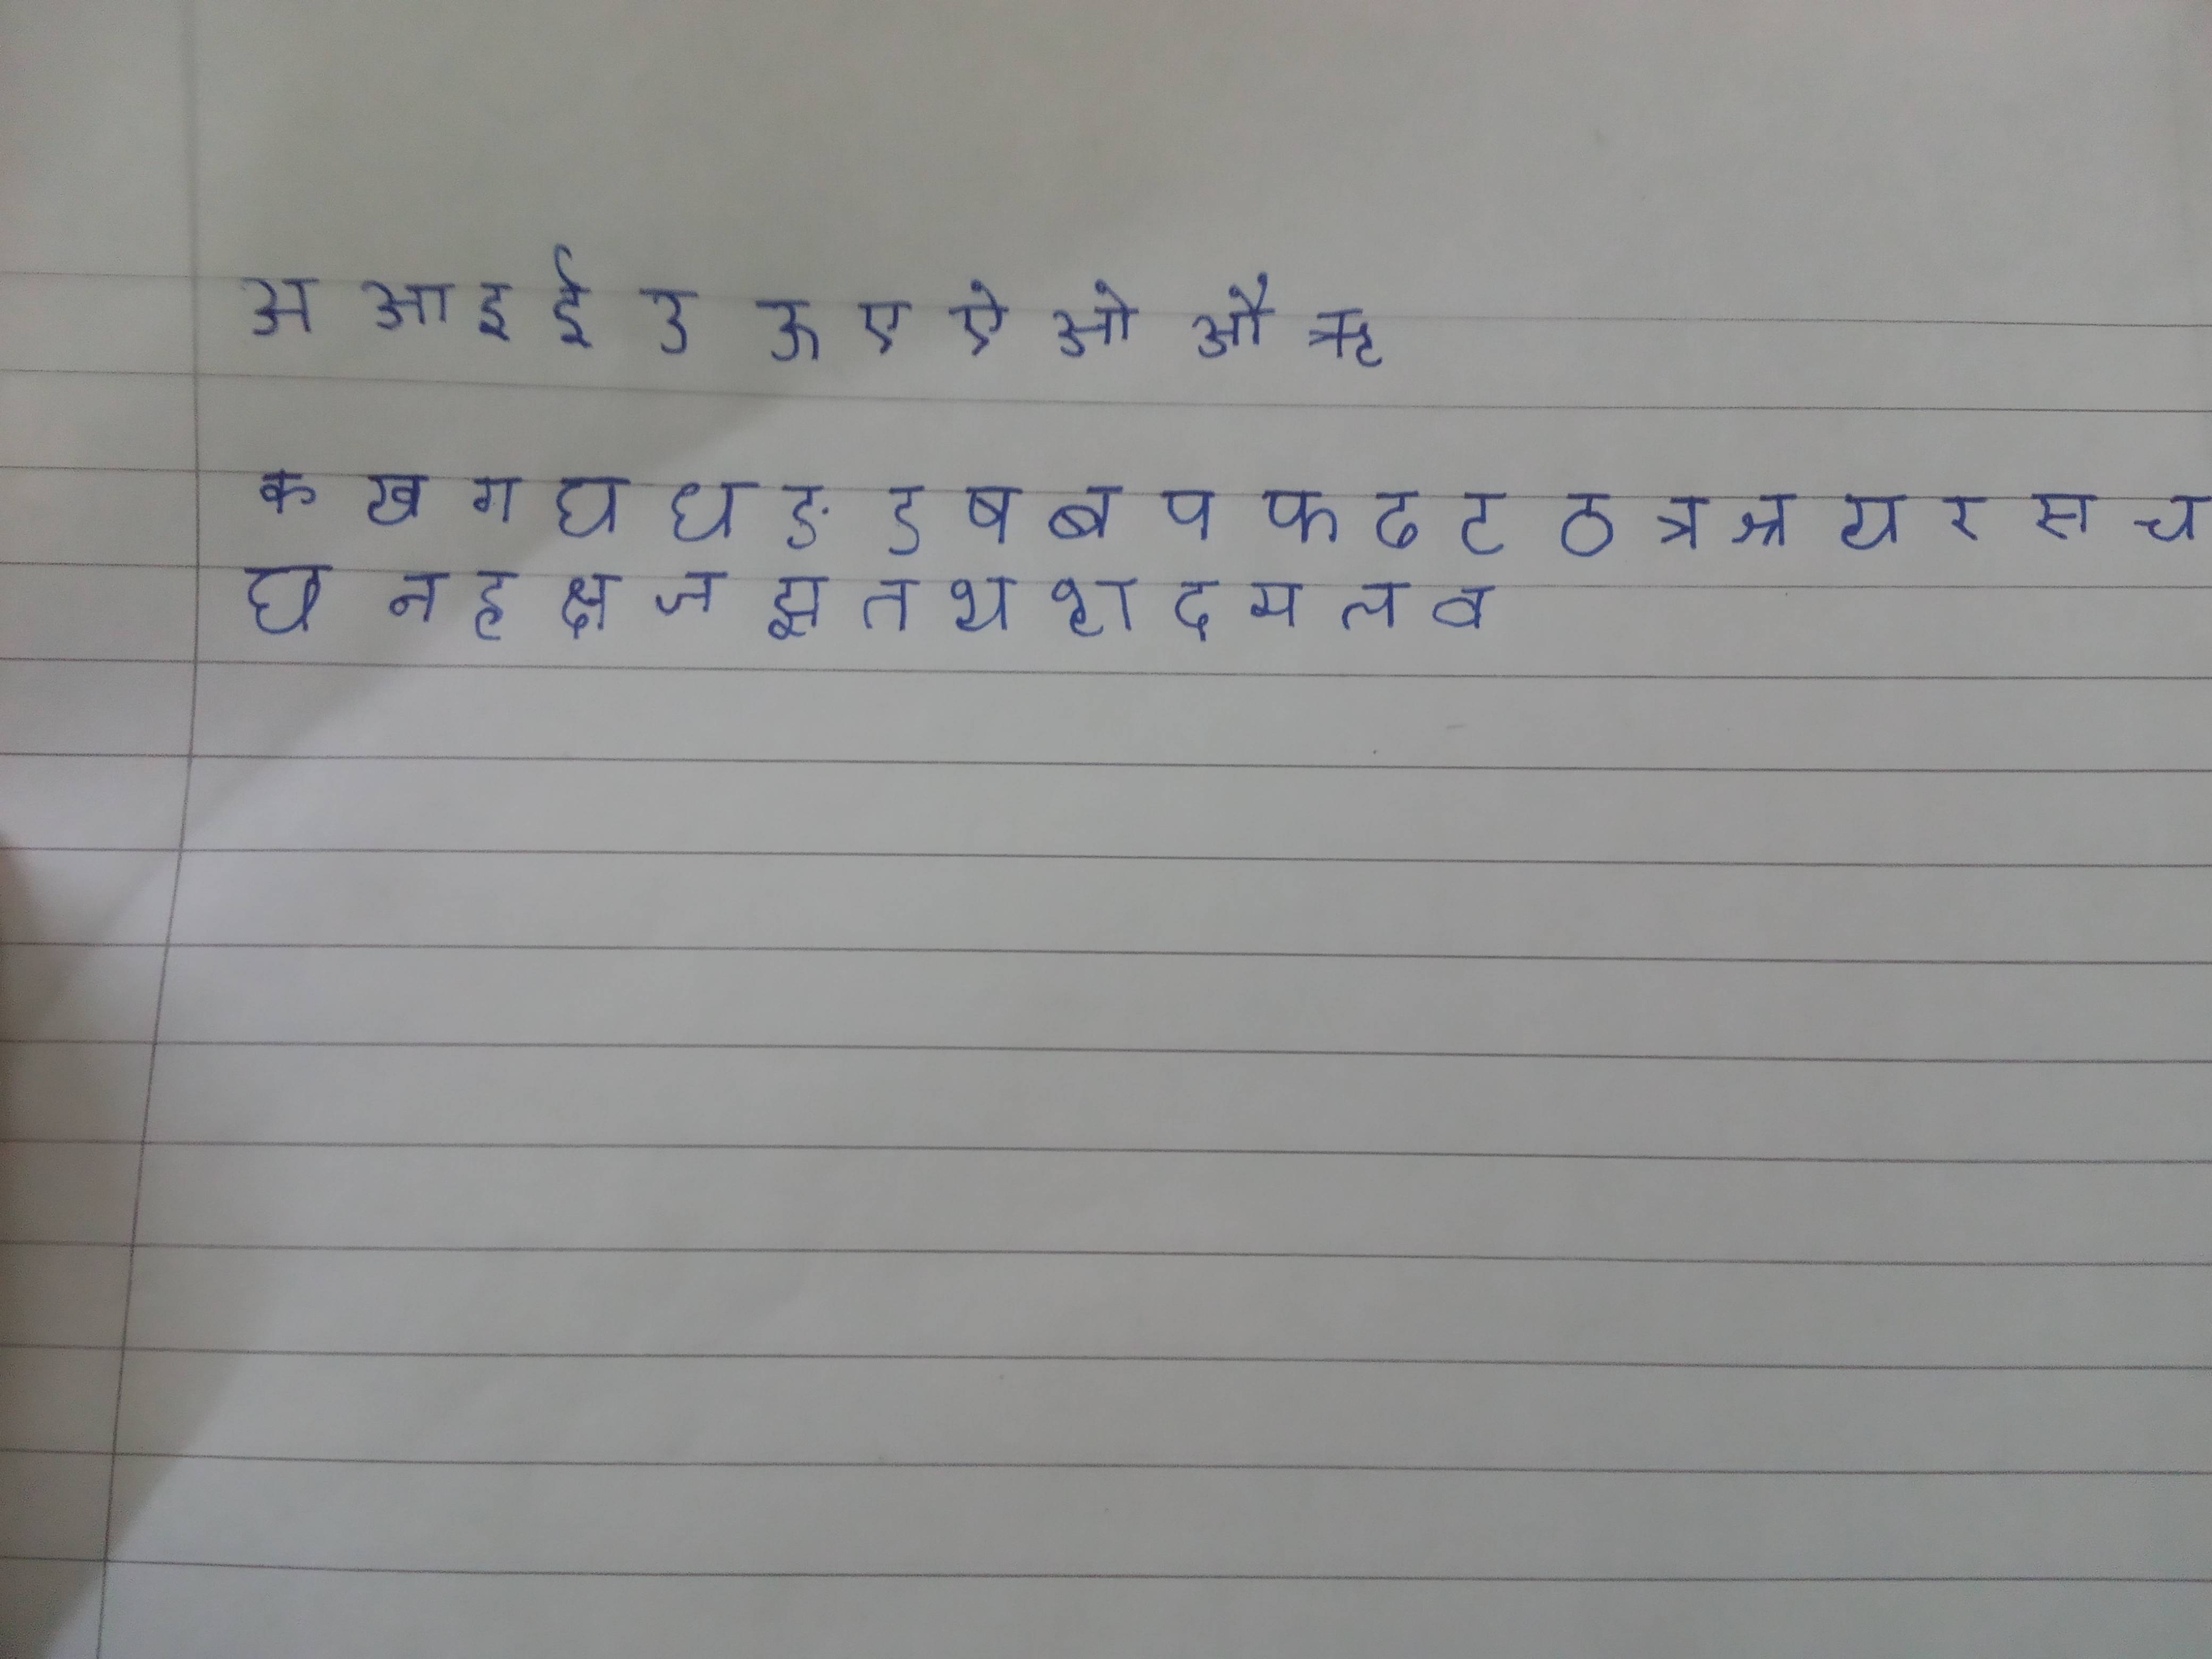 अ आ इ ई उ ऊ ए ऐ ओ औ ऋ
क ख ग घ ध ङ ड ष ब प फ ढ ट ठ त्र ञ य र स च
छ न ह क्ष ज झ त थ श द म ल व